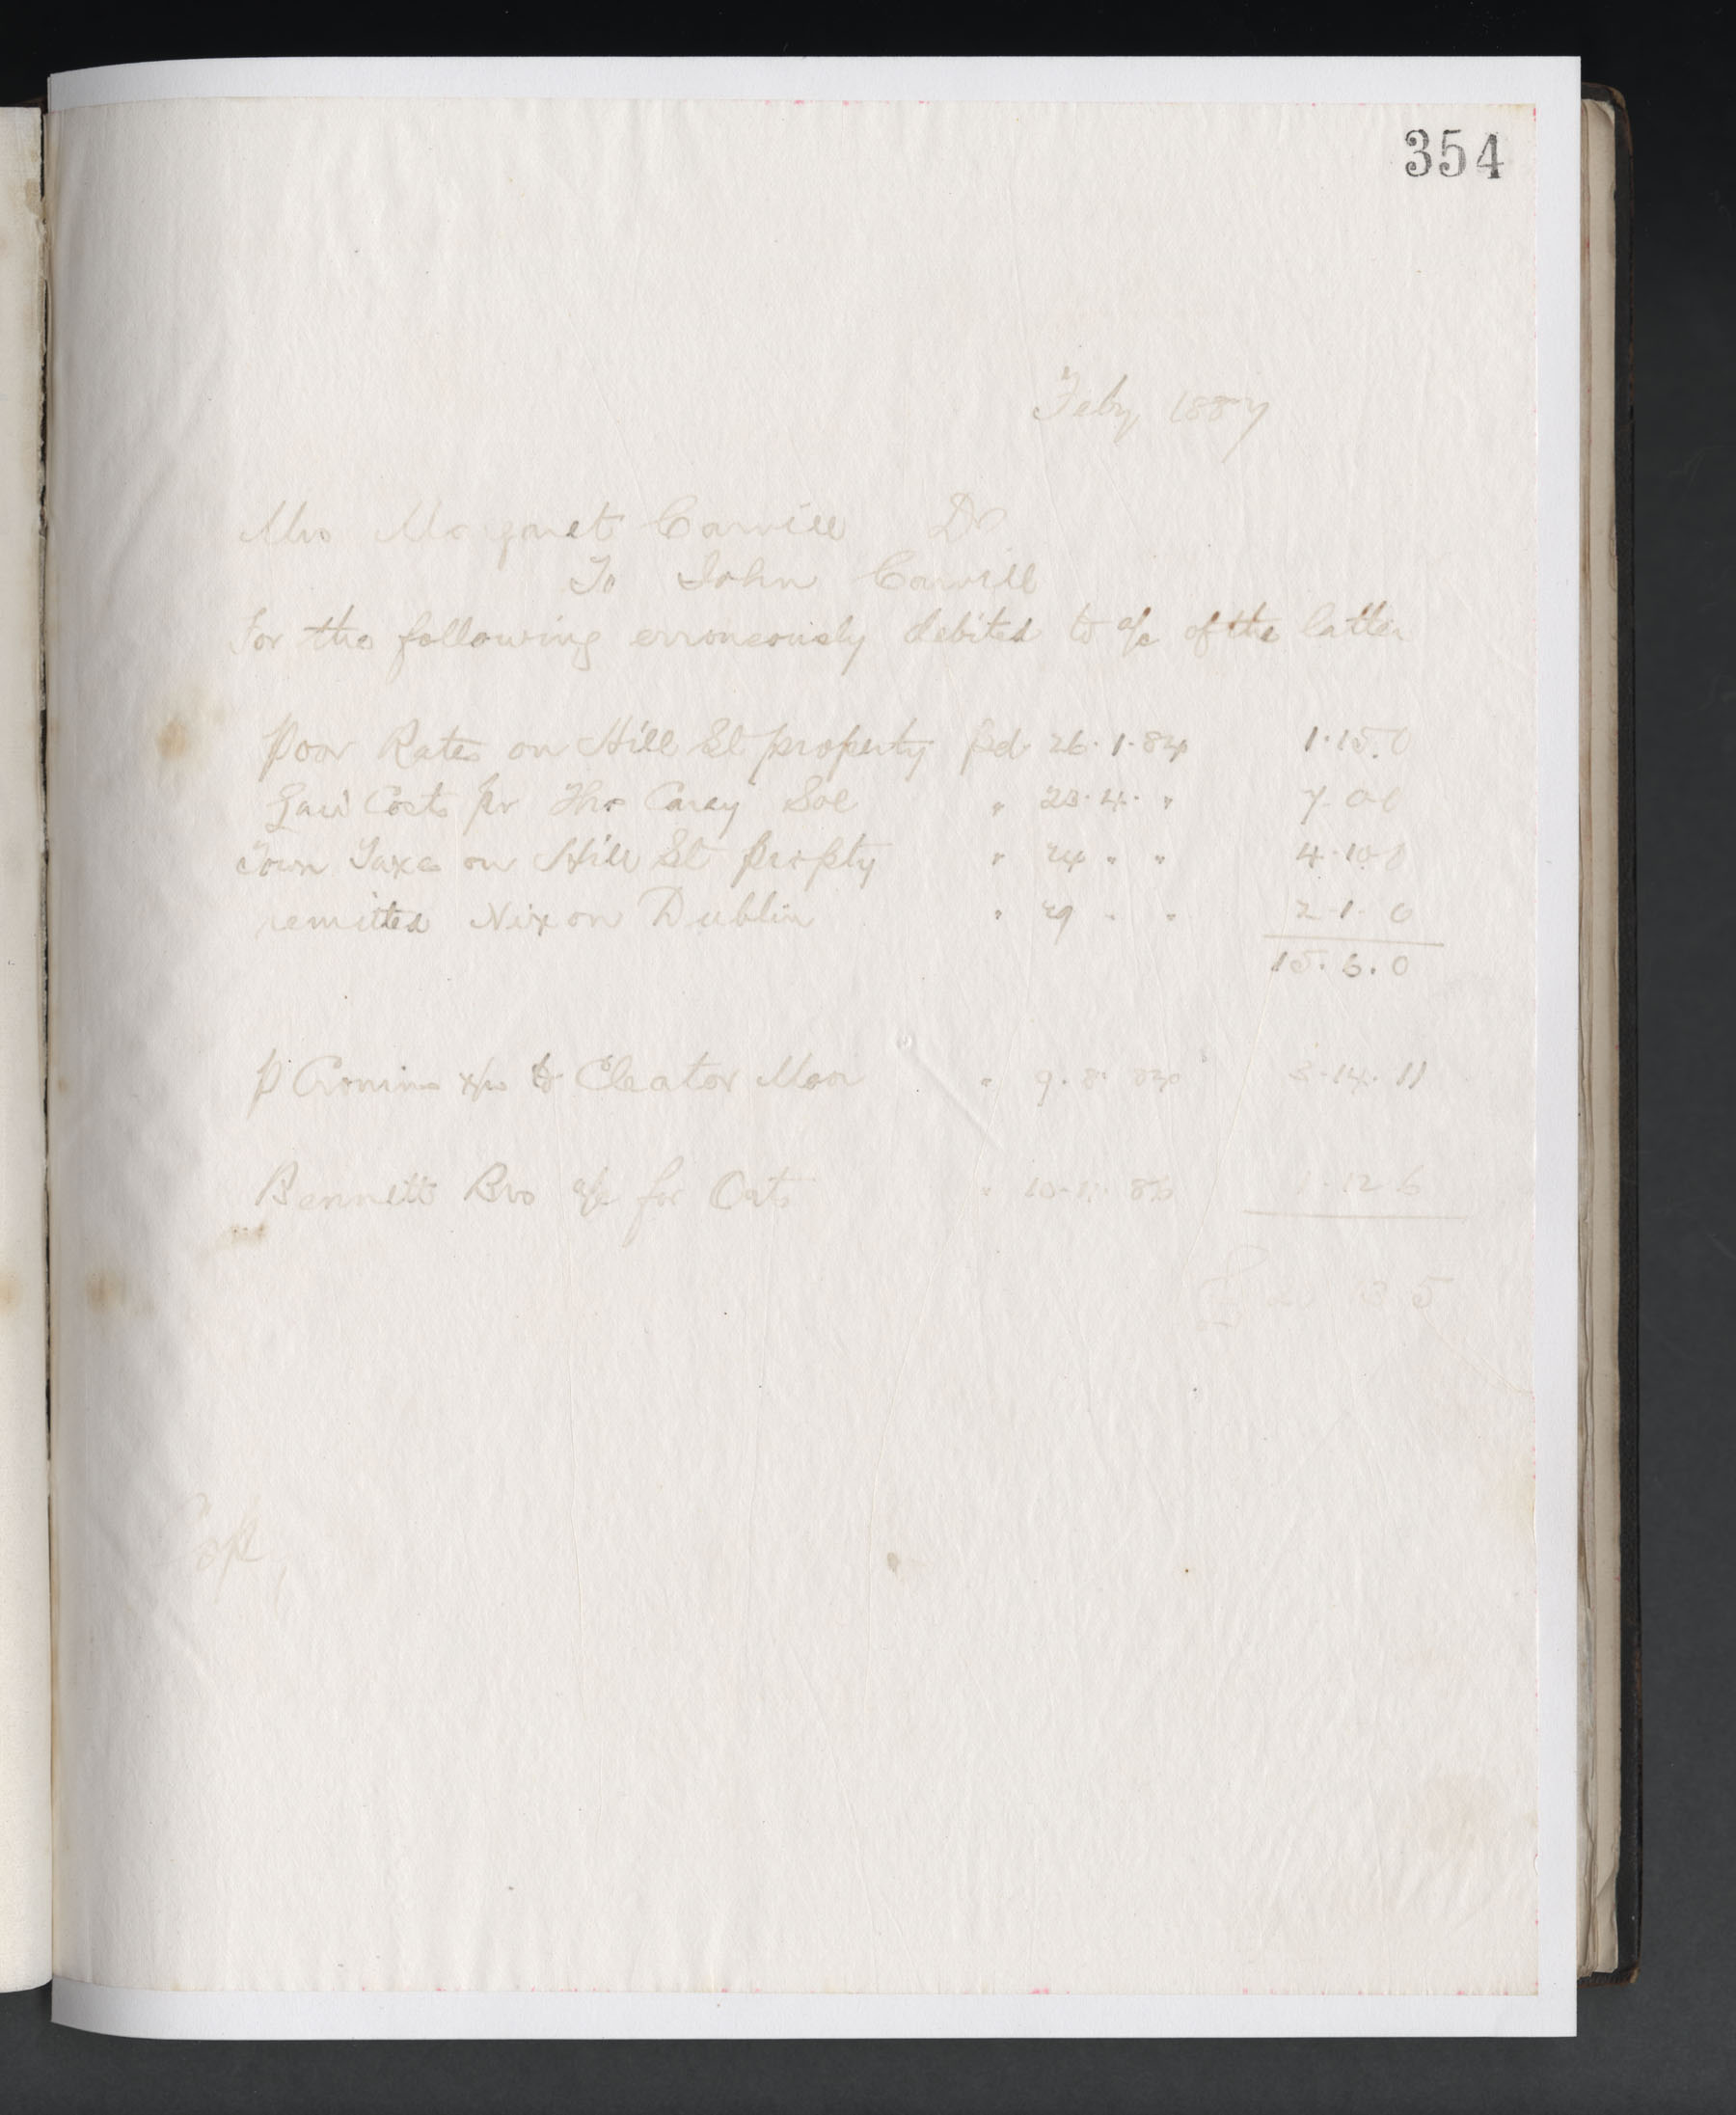 354
Feby 1887
Mrs Margaret Carvill Dr
To John Carvill
For the following erroneously debited to a/c of the latter
Poor Rates on Hill St property pd 26.1.84 1.15.0
Law Costs pr Thos Carey Sol " 23.4. " 7.0.0
Town Taxes on Hill St propty " 24 " " 4.10.0
remitted Nixon Dublin " 29 " " 2.1.0
15.6.0
P Cronin to Cleator Moor " 9.8. 3.14.11
Bennett Bros a/c for Oats " 10.11.86 1.12.6
£ 3 5